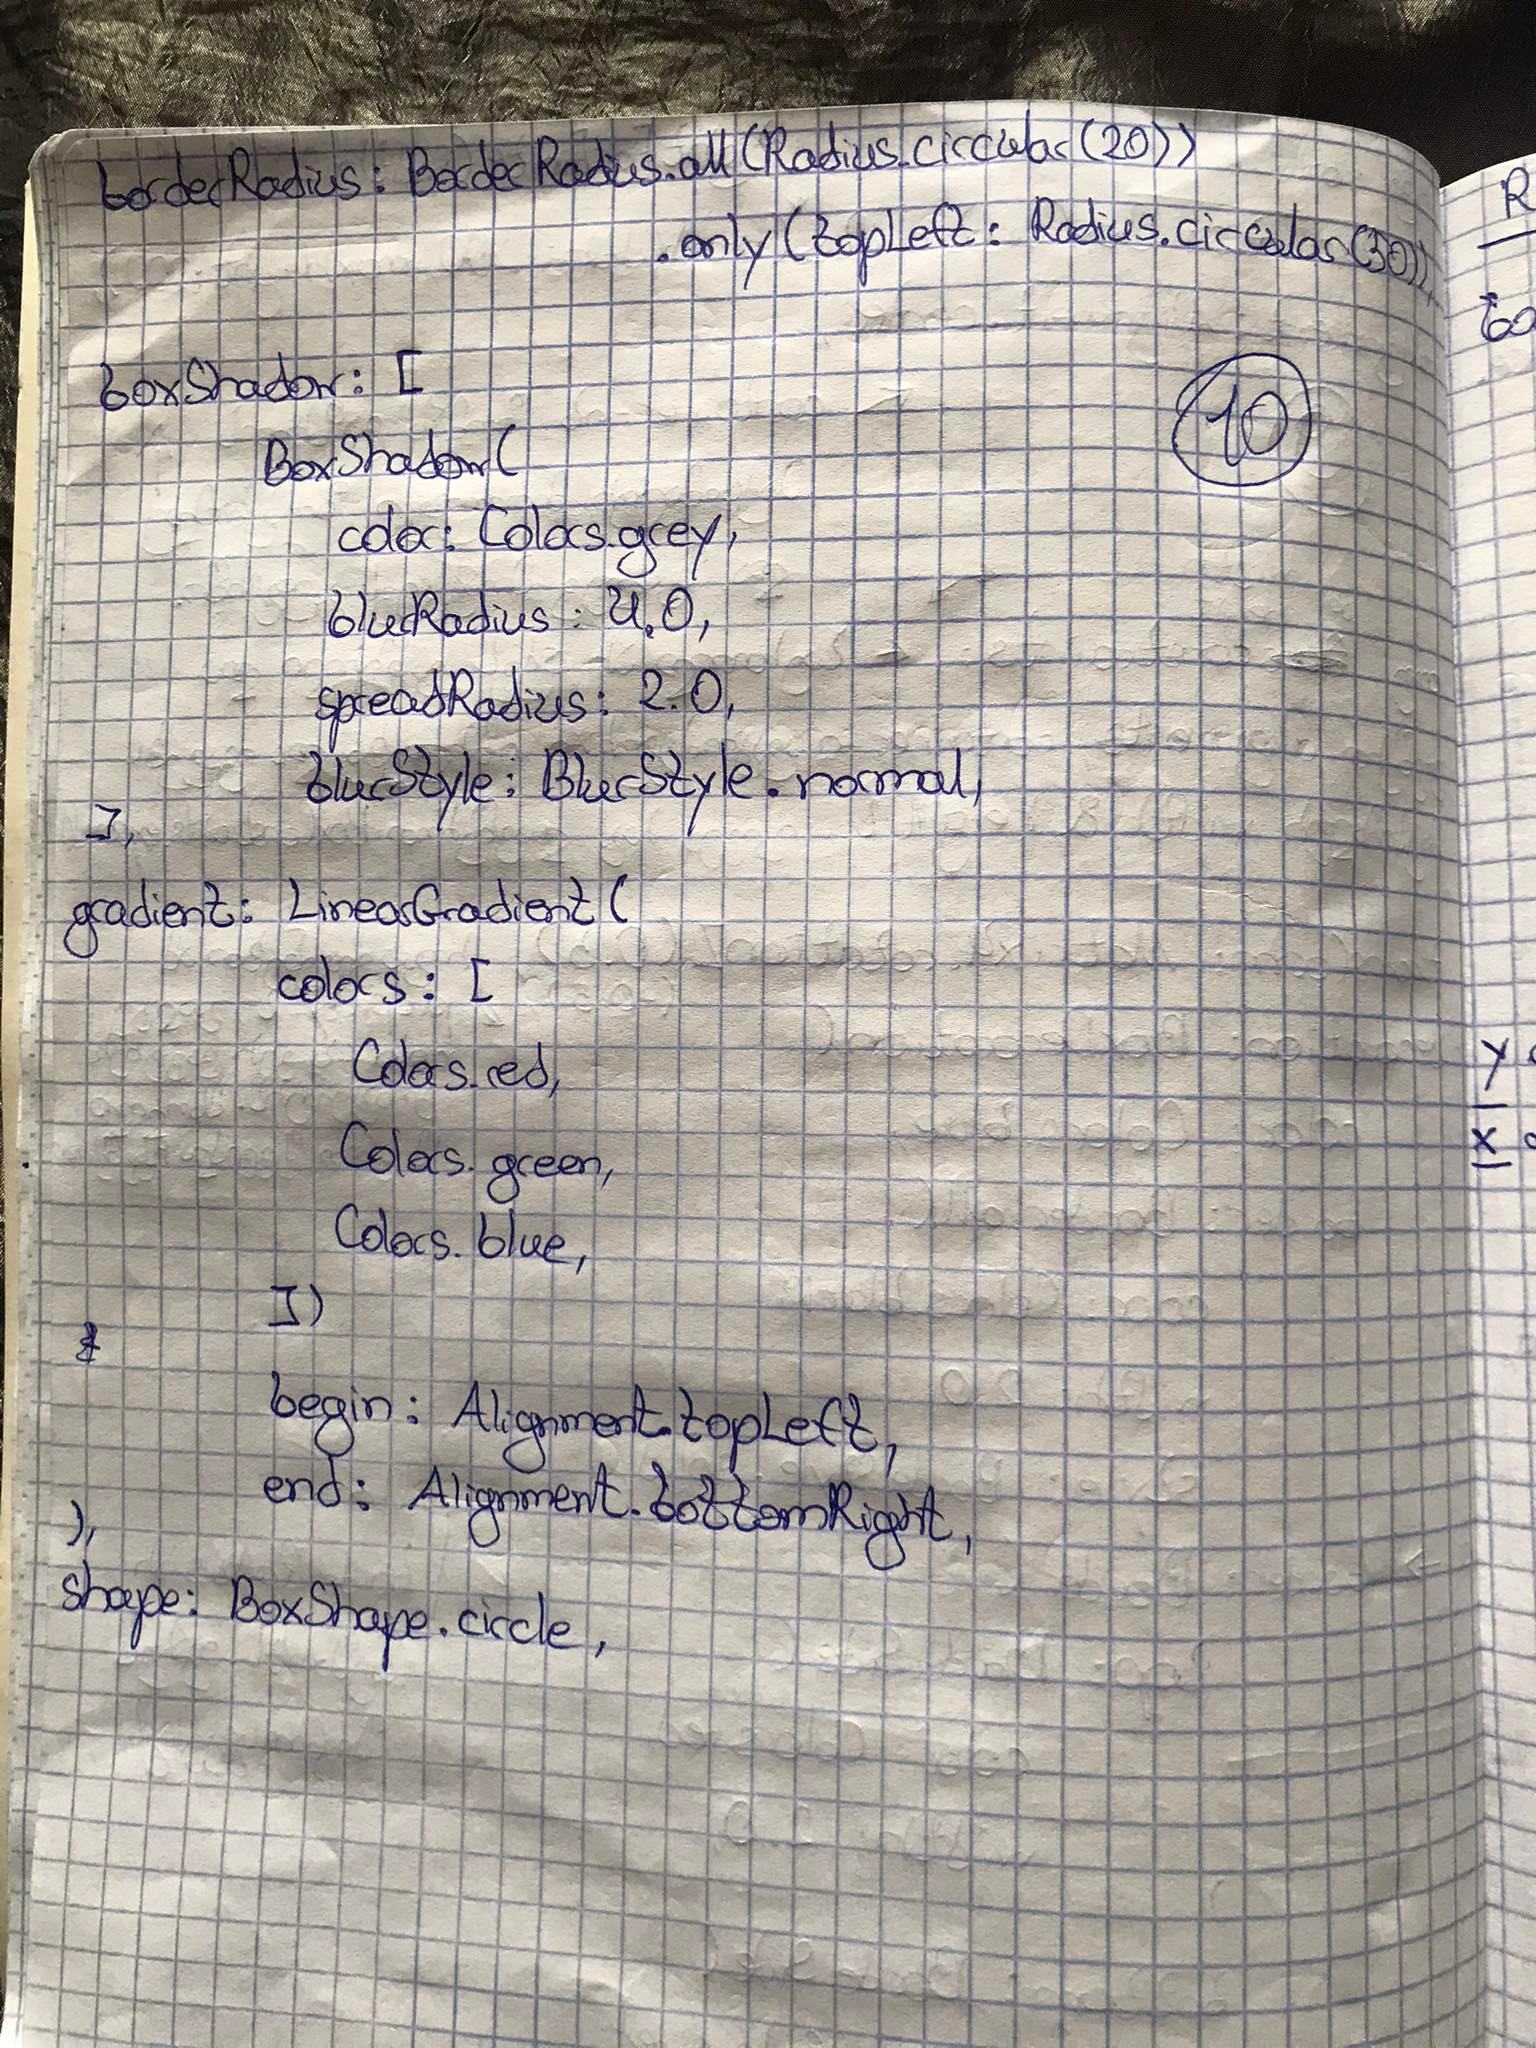 borderRadius: BorderRadius.all(Radius.circular(20))
.only(topLeft: Radius.circular(30)),
boxShadow: [
10
BoxShadow(
color: Colors.grey,
blurRadius: 4.0,
spreadRadius: 2.0,
blurStyle: BlurStyle.normal,
],
gradient: LinearGradient(
colors: [
Colors.red,
Colors.green,
Colors.blue,
])
begin: Alignment.topLeft,
end: Alignment.bottomRight,
),
shape: BoxShape.circle,
R
y
x